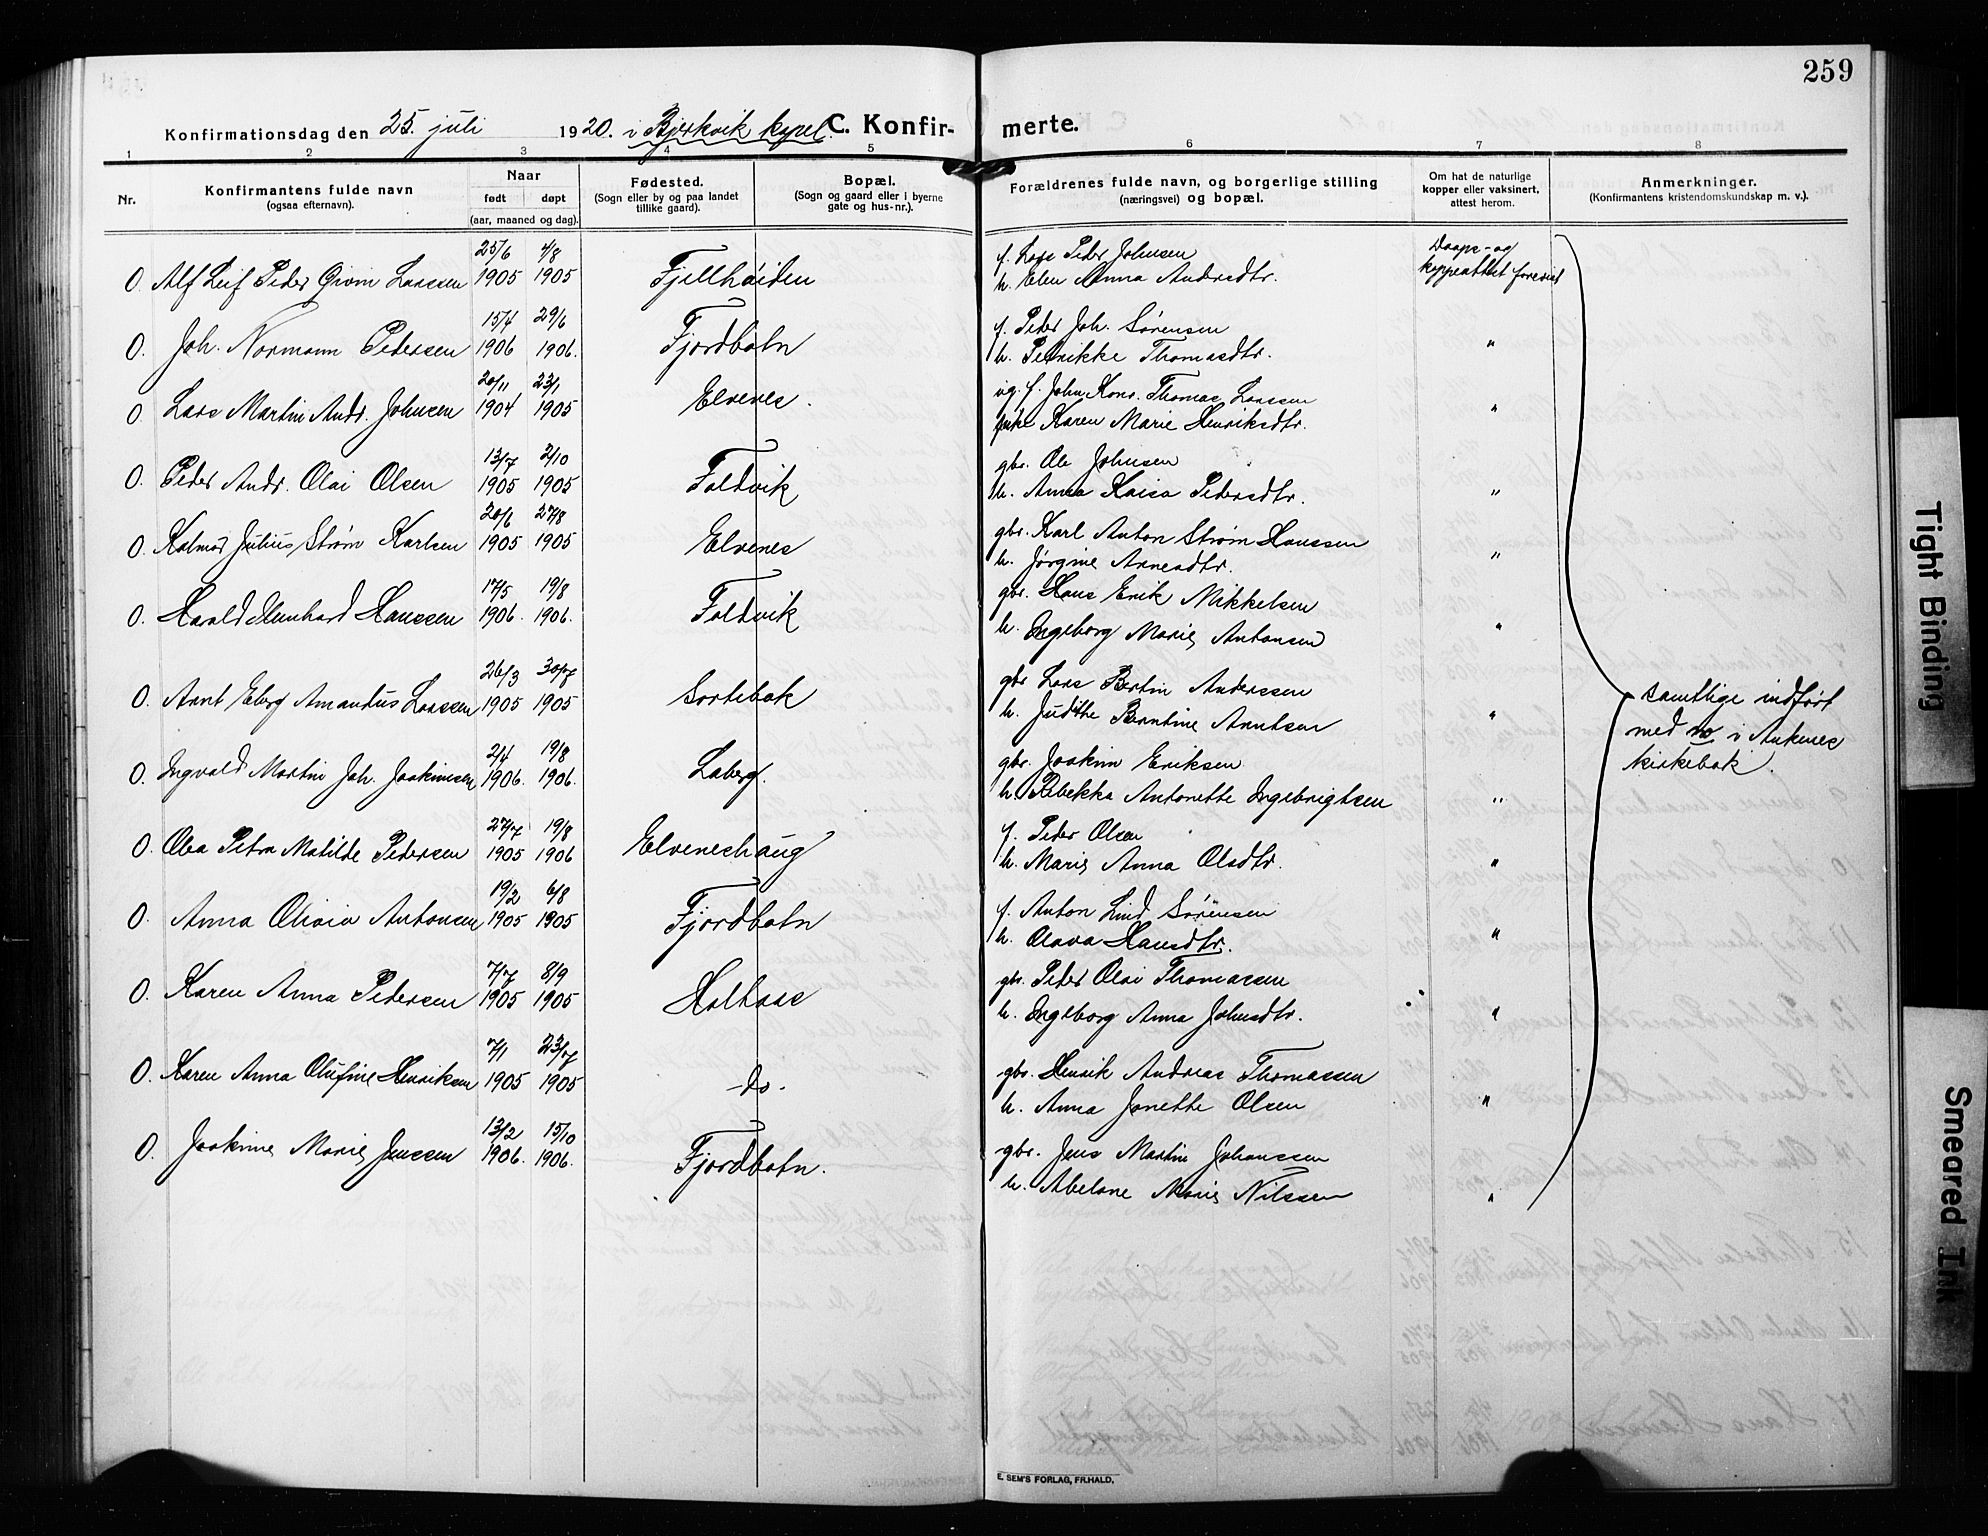 259
Konfirmationsdag den 25. juli 1920. i Bjerkvik kapel. C. Konfir- merte.
1 2 3 4 5 6 7 8
Nr.
Konfirmantens fulde navn
(ogsaa efternavn).
Naar
født døpt
(aar, maaned og dag).
Fødested.
(Sogn eller by og paa landet
tillike gaard).
Bopæl.
(Sogn og gaard eller i byerne
gate og hus-nr.).
Forældrenes fulde navn, og borgerlige stilling
(næringsvei) og bopæl.
Om hat de naturlige
kopper eller vaksinert,
attest herom.
Anmerkninger.
(Konfirmantens kristendomskundskap m. v.).
25/6 4/8
0. Alf Leif Peder Larssen 1905 1905 Fjellhøiden
f. Lars Peder Johnsen
h. Elen Anna Andersdtr.
Daaps- og
koppeattest forevist
15/4 29/6
0. Joh. Normann Pedersen 1906 1906. Fjordbotn
f. Peder Joh. Sørensen
h. Petrikke Thomasdtr. "
20/11 23/1
0. Lars Martin Andr. Johnsen 1904 1905 Elvenes.
ug. f. John Konr. Thomas Larssen
pike Karen Marie Henriksdtr. "
13/7 2/10
0. Peder Andr. Olai Olsen 1905 1905 Foldvik
gbr. Ole Johnsen
h. Anna Kaisa Pedersdtr. "
20/6 27/8
0. Kalmar Julius Strøm Karlsen 1905 1905 Elvenes
gbr. Karl Anton Strøm Hanssen
h. Jørgine Arnesdtr. "
17/5 19/8
0. Harald Meinhard Hanssen 1906. 1906. Foldvik
gbr. Hans Erik Mikkelsen
h. Ingeborg Marie Antonsen "
26/3 30/7
0. Arnt Eberg Amandus Larssen 1905 1905 Sortebak
gbr Lars Bertin Anderssen
h. Judithe Berntine Arntsen "
samtlige indført
med no i Ankenes
kirkebok.
2/4 19/8
0. Ingvald Martin Joh. Joakimsen 1906. 1906. Laberg.
gbr. Joakim Eriksen
h. Rebekka Antonette Ingebrigtsen "
27/7 19/8
0. Olea Petra Matilde Pedersen 1905 1906 Elveneshaug
f. Peder Olsen
h. Marie Anna Olsdtr. "
19/2 6/8
0. Anna Olivia Antonsen 1905 1905 Fjordbotn
f. Anton Lind Sørensen
h. Olava Hansdtr. "
7/7 8/9
0. Karen Anna Pedersen 1905 1905 Holtaas
gbr. Peder Olai Thomassen
h. Ingeborg Anna Johnsdtr. "
7/1 23/7
0. Karen Anna Olufine Henriksen 1905 1905 -do-
gbr. Henrik Andreas Thomassen
h. Anna Jonette Olsen "
13/2 15/10
0. Joakime Marie Jenssen 1906. 1906. Fjordbotn.
gbr. Jens Martin Johanssen
h. Abelone Marie Nilssen "
E. SEM'S FORLAG, FR.HALD.
Tight Binding
Smeared Ink